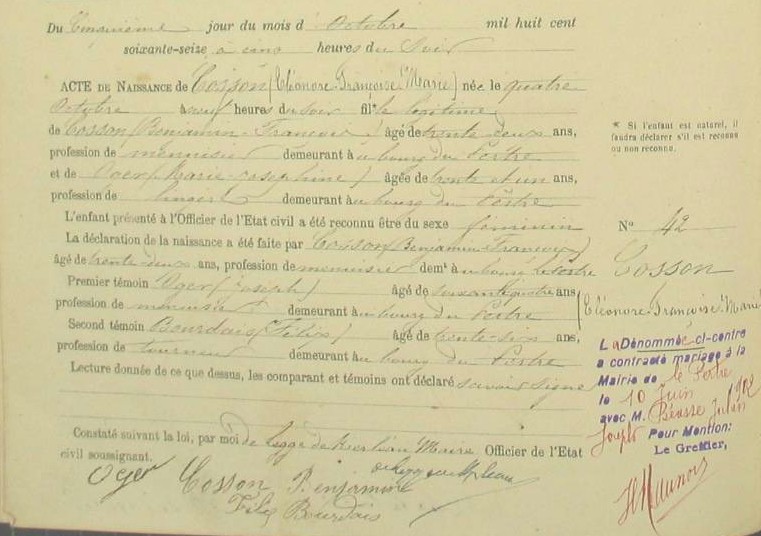 Du Cinquième jour du mois d' Octobre mil huit cent
soixante-seize à cinq heures du Soir
ACTE DE NAISSANCE de Cosson (Eléonore-Françoise-Marie) née le quatre
Octobre à neuf heures du soir fille légitime
de Cosson (Benjamin-François) âgé de trente deux ans,
profession de menuisier demeurant à u bourg du Pertre
et de Oger (Marie-Joséphine) âgée de trente et un ans,
profession de lingère demeurant à u bourg du Pertre
L'enfant présenté à l'Officier de l'Etat civil a été reconnu être du sexe féminin
La déclaration de la naissance a été faite par Cosson (Benjamin-François)
âgé de trente-deux ans, profession de menuisier demt à u bourg du Pertre
Premier témoin Oger (Joseph) âgé de soixante quatre ans
profession de menuisier demeurant à u bourg du Pertre
Second témoin Bourdais (Félix) âgé de trente-six ans,
profession de tourneur demeurant à u bourg du Pertre
Lecture donnée de ce que dessus, les comparant et témoins ont déclaré savoir signer
Constaté suivant la loi, par moi de Maire Officier de l'Etat
civil soussignant.
Oger Cosson Benjamin
Félix Bourdais
* Si l'enfant est naturel, il
faudra déclarer s'il est reconnu
ou non reconnu.
No 42
Cosson
(Eléonore-Françoise-Marie
La Dénommée ci-contre
a contracté mariage à la
Mairie de le Pertre
le 10 Juin 1902
avec M. Béasse Julien
Joseph Pour Mention:
Le Greffier,